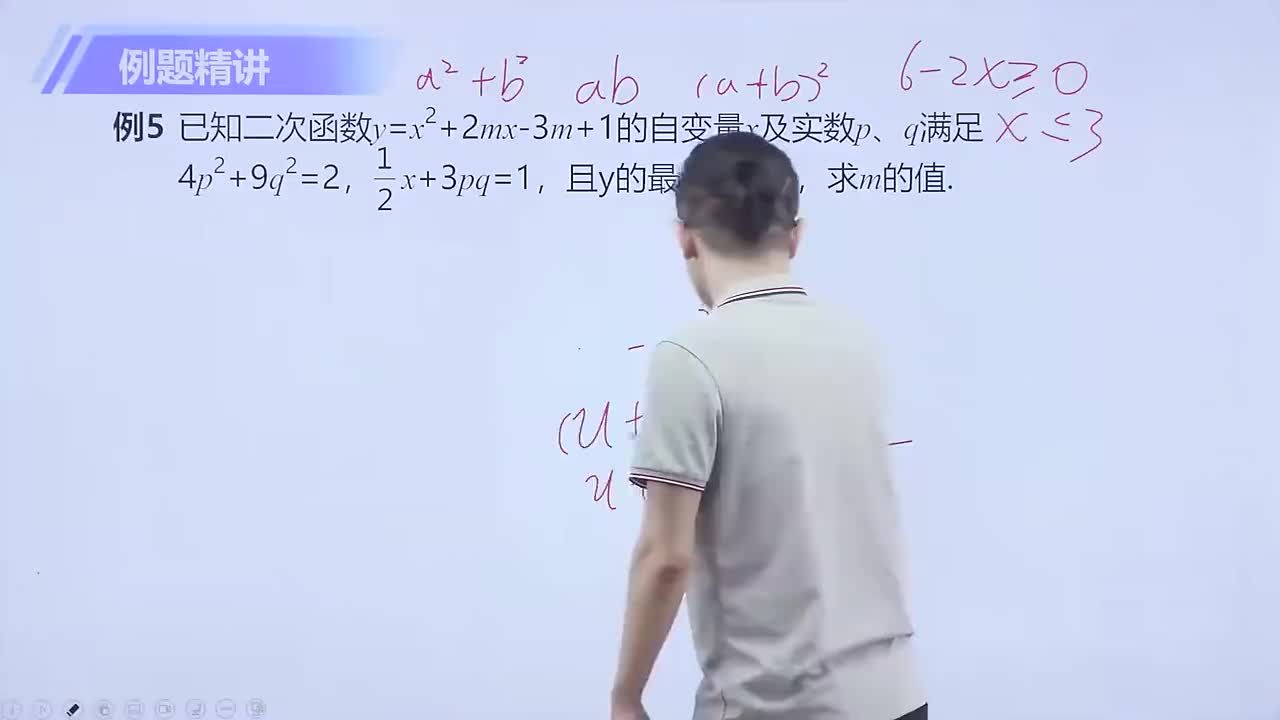 例题精讲
a²+b² ab (a+b)² 6-2x≥0
例5 已知二次函数y=x²+2mx-3m+1的自变量x及实数p、q满足 x≤3
4p²+9q²=2，1/2x+3pq=1，且y的最 ，求m的值.
(u+
u